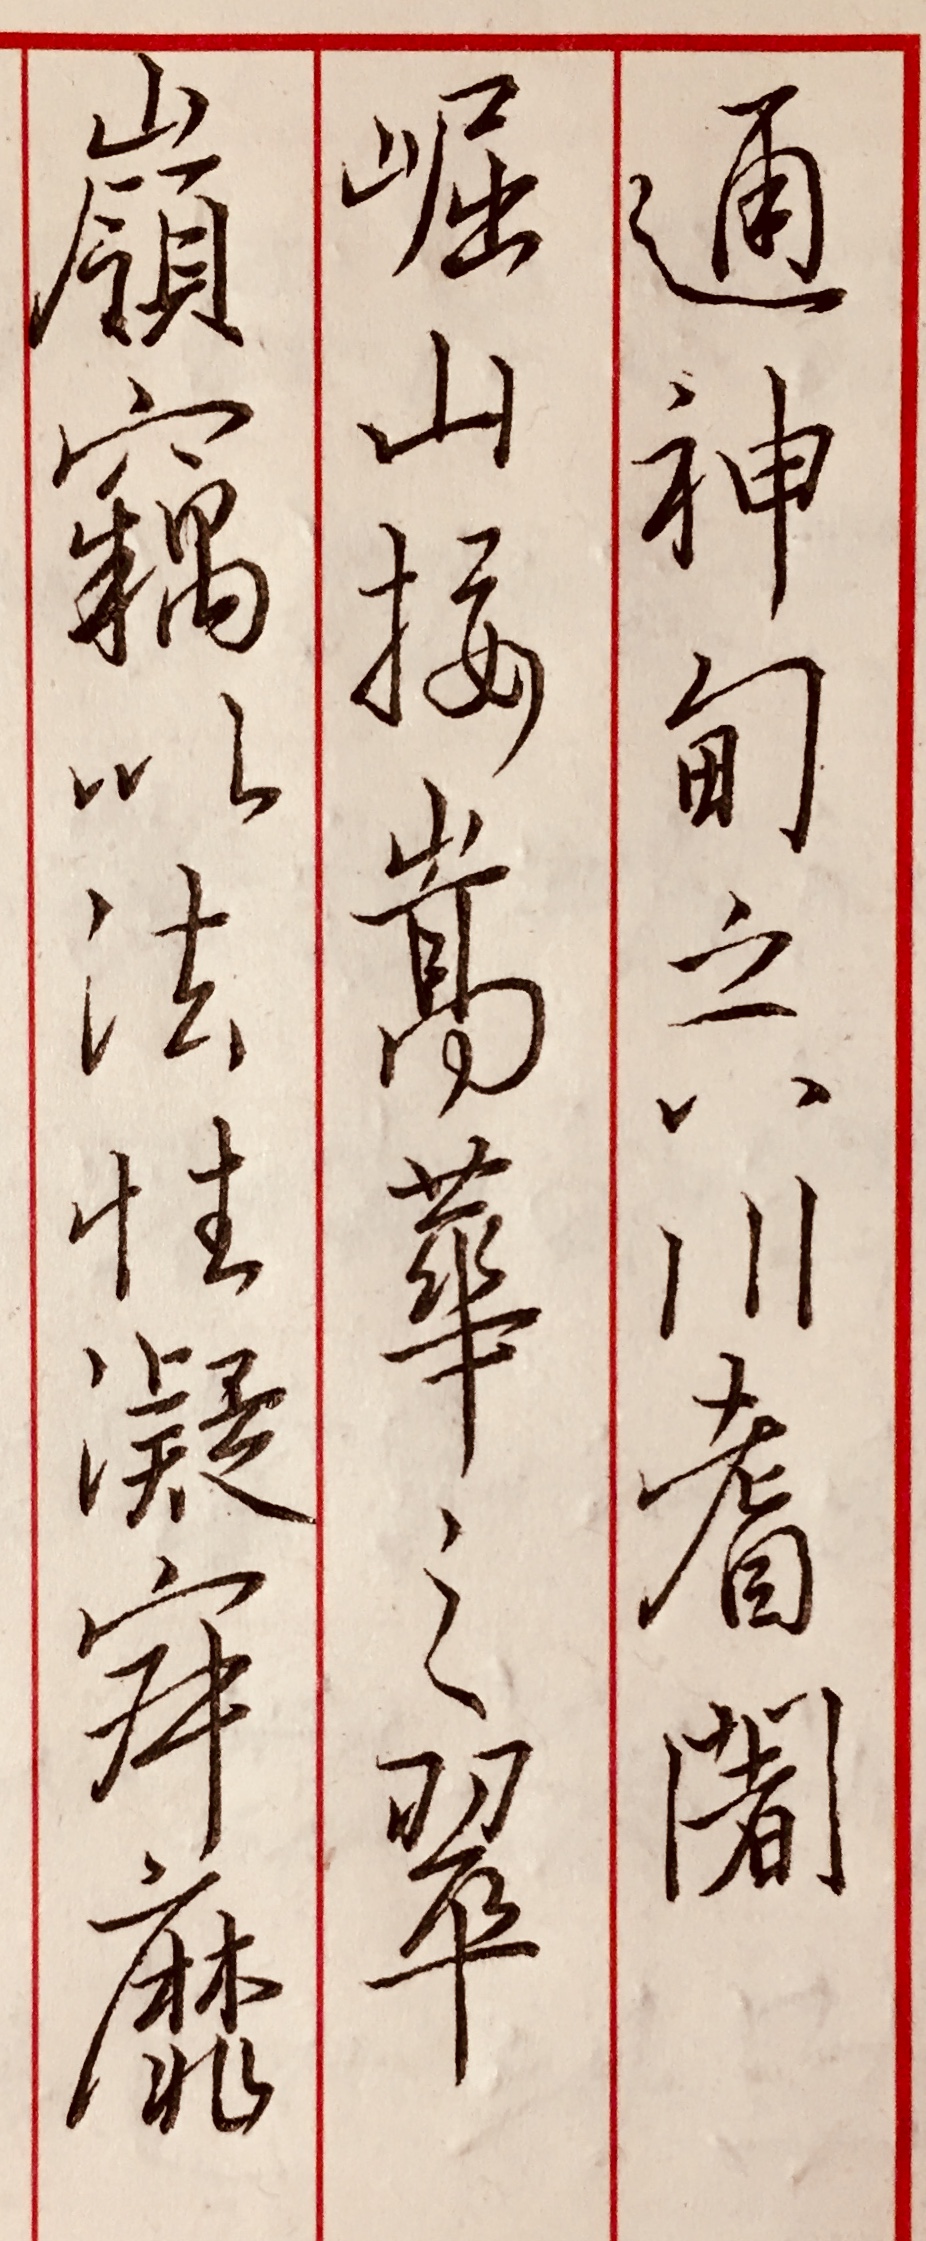 通神甸之八川耆闍
崛山接嵩華之翠
嶺竊以法性凝寂靡